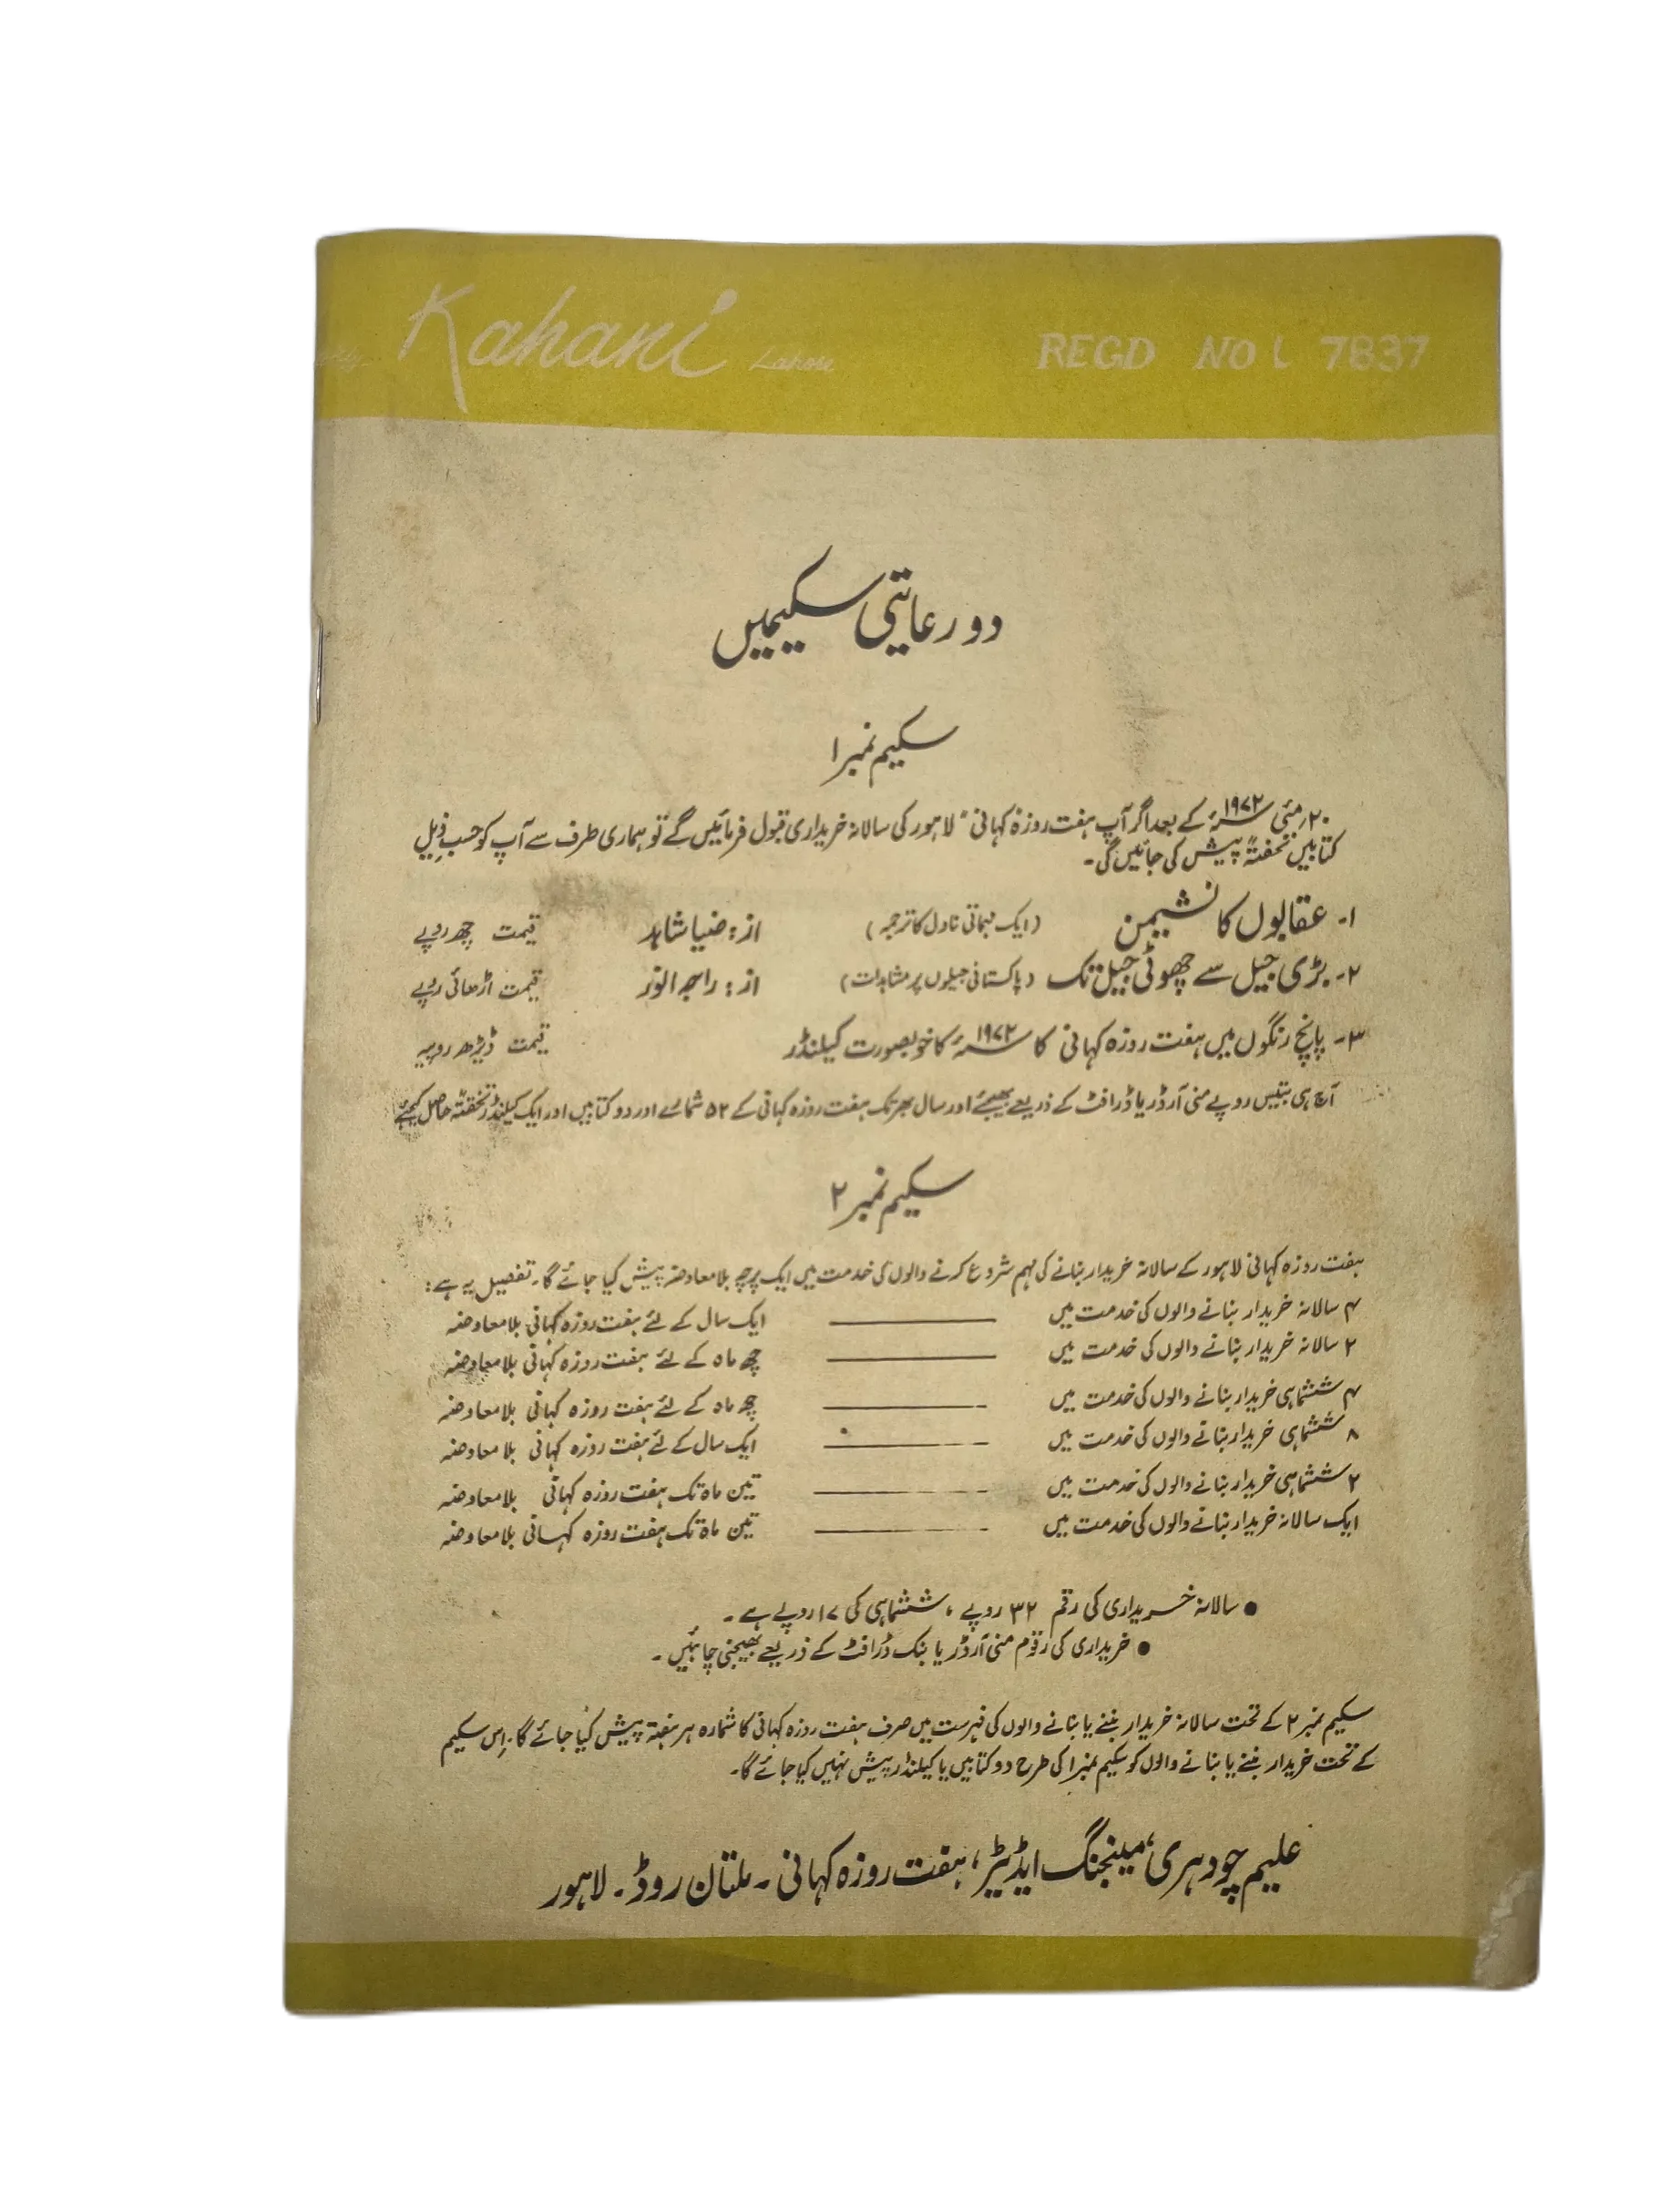 Kahani Lahore REGD NO L 7837
دو رعایتی سکیمیں
سکیم نمبر ۱
۲۰؍مئی ۱۹۷۲ء کے بعد اگر آپ ہفت روزہ کہانی" لاہور کی سالانہ خریداری قبول فرمائیں گے تو ہماری طرف سے آپ کو حسب ذیل
کتابیں تحفتہً پیش کی جائیں گی۔
۱۔ عقابوں کا نشیمن (ایک مہماتی ناول کا ترجمہ) از: ضیا شاہد قیمت چھ روپے
۲۔ بڑی جیل سے چھوٹی جیل تک (پاکستانی جیلوں پر مشاہدات) از: راجہ انور قیمت اڑھائی روپے
۳۔ پانچ رنگوں میں ہفت روزہ کہانی کا ۱۹۷۲ء کا خوبصورت کیلنڈر قیمت ڈیڑھ روپیہ
آج ہی بتیس روپے منی آرڈر یا ڈرافٹ کے ذریعے بھیجئے اور سال بھر تک ہفت روزہ کہانی کے ۵۲ شمارے اور دو کتابیں اور ایک کیلنڈر تحفتہً حاصل کیجئے
سکیم نمبر ۲
ہفت روزہ کہانی لاہور کے سالانہ خریدار بنانے کی مہم شروع کرنے والوں کی خدمت میں ایک پرچہ بلا معاوضہ پیش کیا جائے گا۔ تفصیل یہ ہے:
۴ سالانہ خریدار بنانے والوں کی خدمت میں ——— ایک سال کے لئے ہفت روزہ کہانی بلا معاوضہ
۲ سالانہ خریدار بنانے والوں کی خدمت میں ——— چھ ماہ کے لئے ہفت روزہ کہانی بلا معاوضہ
۴ ششماہی خریدار بنانے والوں کی خدمت میں ——— چھ ماہ کے لئے ہفت روزہ کہانی بلا معاوضہ
۸ ششماہی خریدار بنانے والوں کی خدمت میں ——— ایک سال کے لئے ہفت روزہ کہانی بلا معاوضہ
۲ ششماہی خریدار بنانے والوں کی خدمت میں ——— تین ماہ تک ہفت روزہ کہانی بلا معاوضہ
ایک سالانہ خریدار بنانے والوں کی خدمت میں ——— تین ماہ تک ہفت روزہ کہانی بلا معاوضہ
● سالانہ خریداری کی رقم ۳۲ روپے، ششماہی کی ۱۷ روپے ہے۔
● خریداری کی رقوم منی آرڈر یا بنک ڈرافٹ کے ذریعے بھیجنی چاہئیں۔
سکیم نمبر ۲ کے تحت سالانہ خریدار بننے یا بنانے والوں کی فہرست میں صرف ہفت روزہ کہانی کا شمارہ ہر ہفتہ پیش کیا جائے گا۔ اِس سکیم
کے تحت خریدار بننے یا بنانے والوں کو سکیم نمبر ۱ کی طرح دو کتابیں یا کیلنڈر پیش نہیں کیا جائے گا۔
علیم چودہری، مینجنگ ایڈیٹر، ہفت روزہ کہانی ۔ ملتان روڈ ۔ لاہور